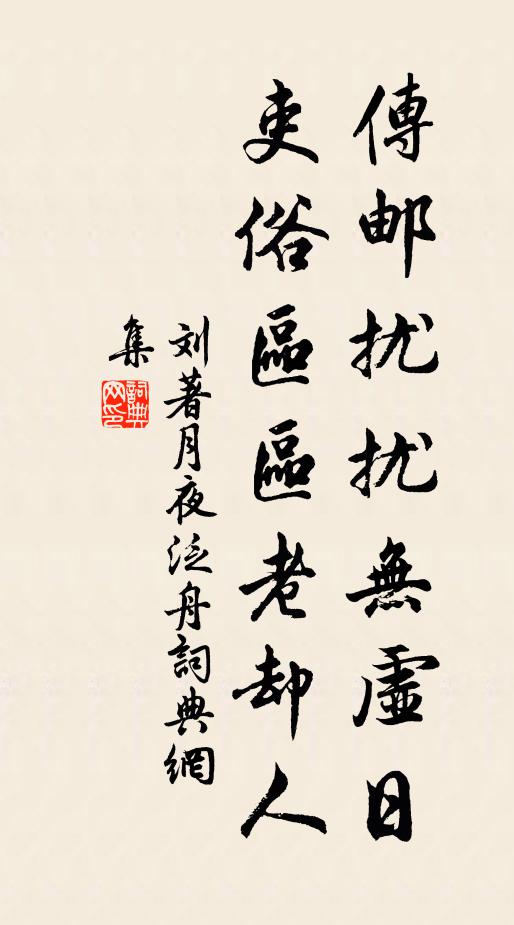 傳邮扰扰無虛日
吏俗區區老却人
刘著月夜泛舟詞典網
集
詞典网印